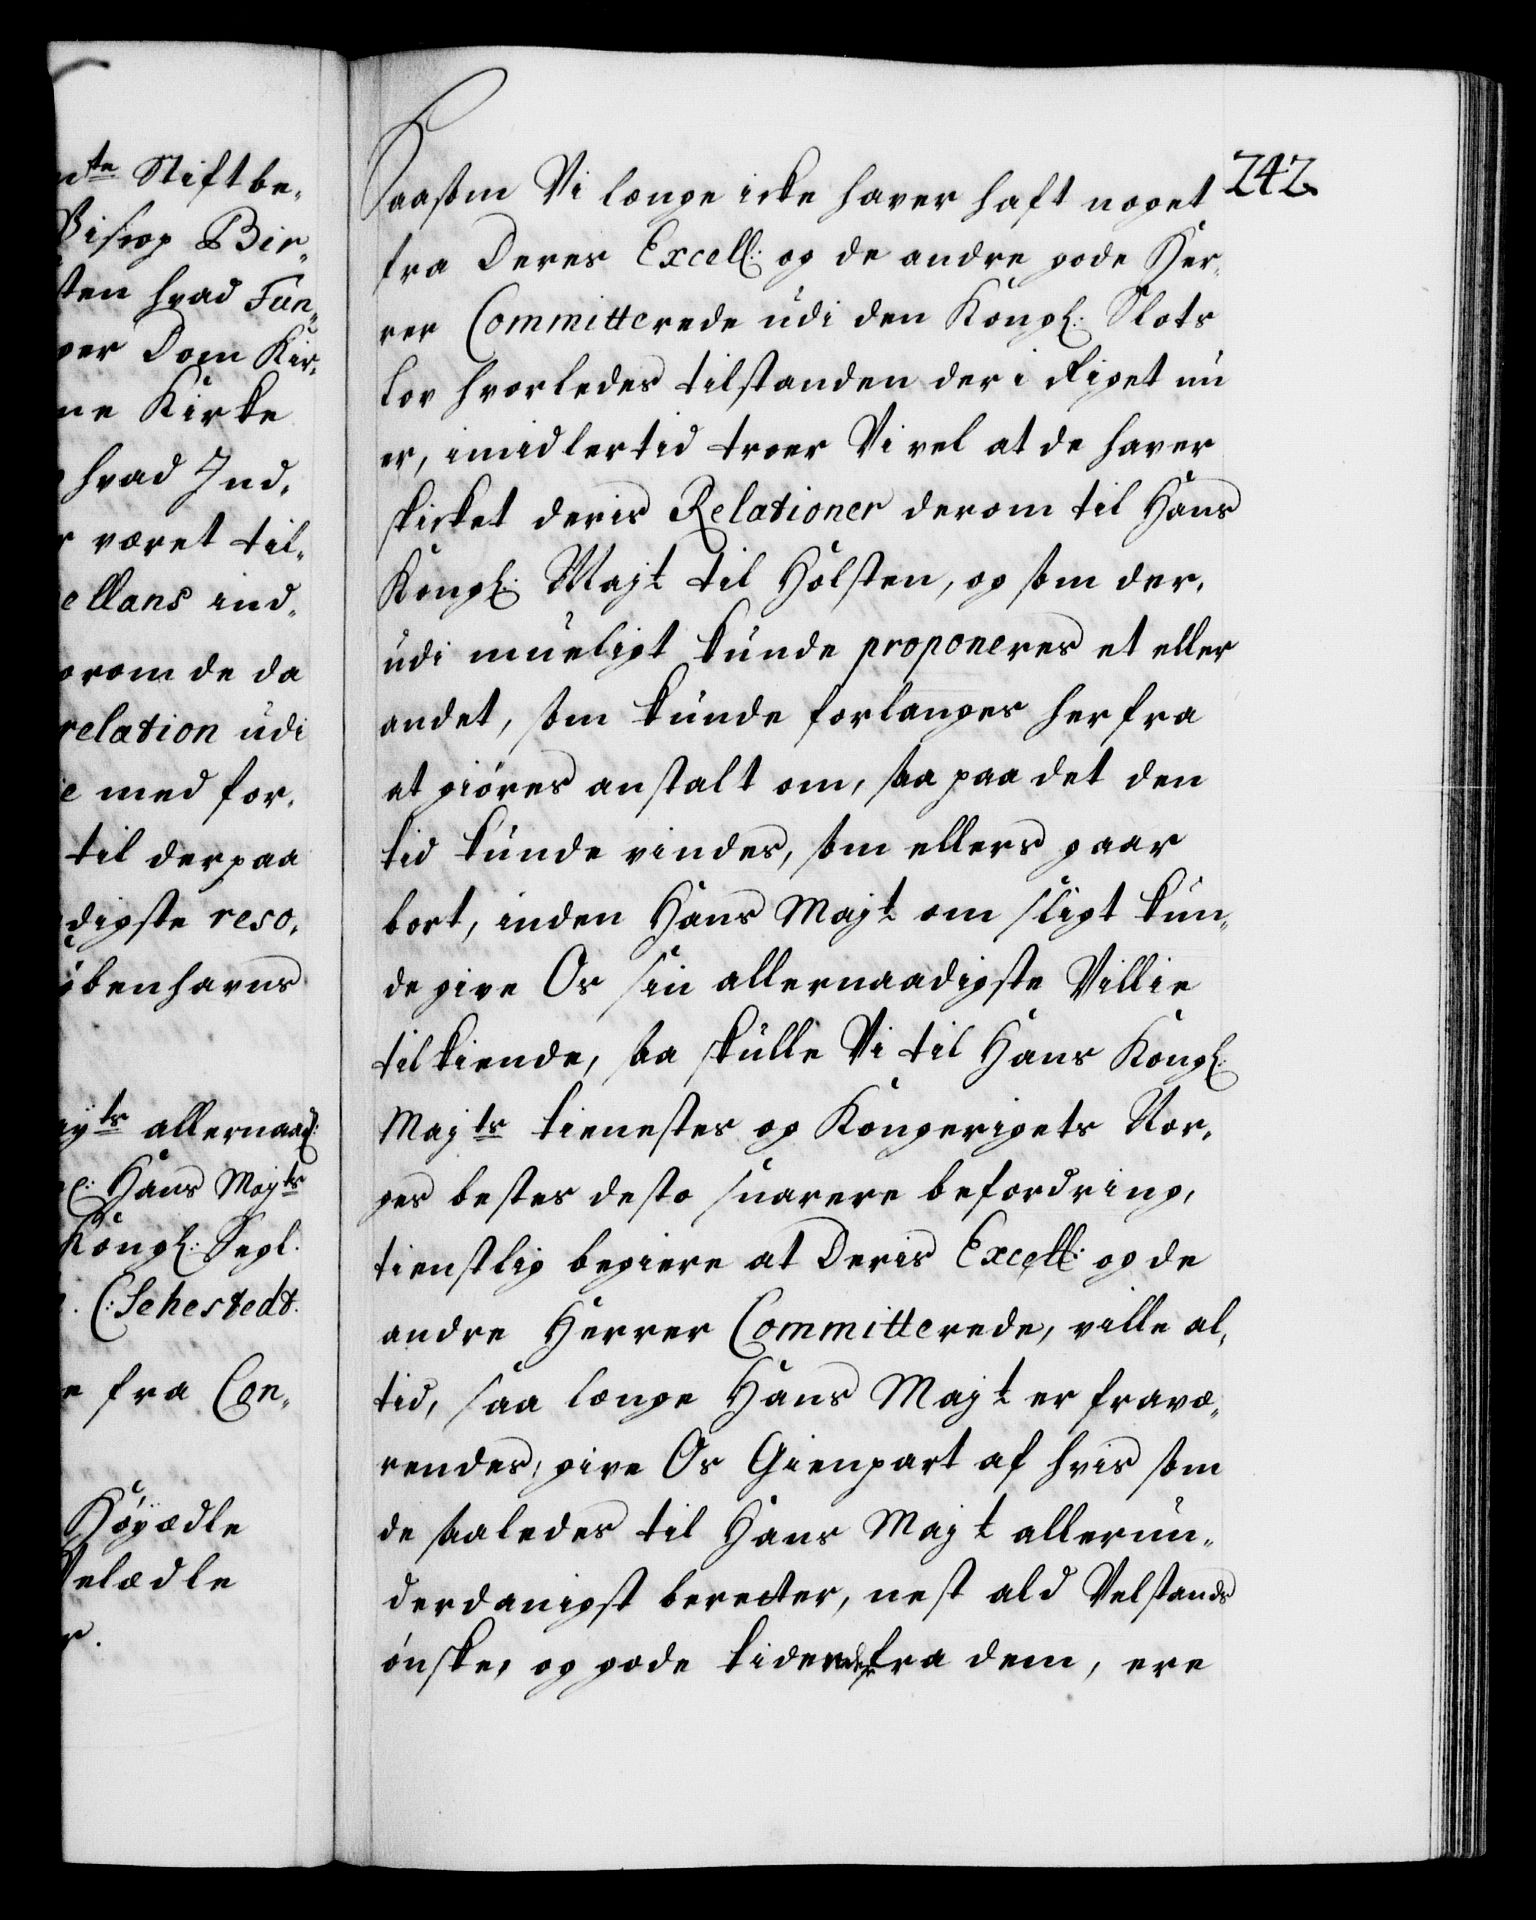 dte Stiftbe,
Biskop Bir,
sten hvad Fun,
ger Dom Kir,
ne Kirke
hvad Ind,
r været til,
ellans ind,
orom de da
relation udi
e med for,
til derpaa
digste reso,
benhavns
ayts allernaad:
Hans Mayts
Kongl: Segl.
C: Sehestedt.
e fra Con,
Høyædle
Velædle
r.
242
Saasom Vi længe icke haver haft noget
fra Deres Excell: og de andre gode Her,
rer Committerede udi den Kongl: Slots
Lov hvorledes tilstanden der i Riget nu
er, imidlertid troer Vi vel at de haver
skicket deris Relationer derom til Hans
Kongl: Majt til Holsten, og som der,
udi mueligt kunde proponeres et eller
andet, som kunde forlanges herfra
at giøres anstalt om, saa paa det den
tid kunde vindes, som ellers gaar
bort, inden Hans Majt om sligt kun,
de give Os sin allernaadigste Villie
tilkiende, saa skulle Vi til Hans Kongl:
Majts tienestes og Kongerigets Nor,
ges bestes desto snarere befordring,
tienstlig begiere at Deris Excell: og de
andre Herrer Committerede, ville al,
tid, saa længe Hans Majt er fravæ,
rendes, give Os Gienpart af hvis som
de saaledes til Hans Majt allerun,
derdanigst berecter, nest ald Velstands
ønske, og gode tidender fra dem, ere